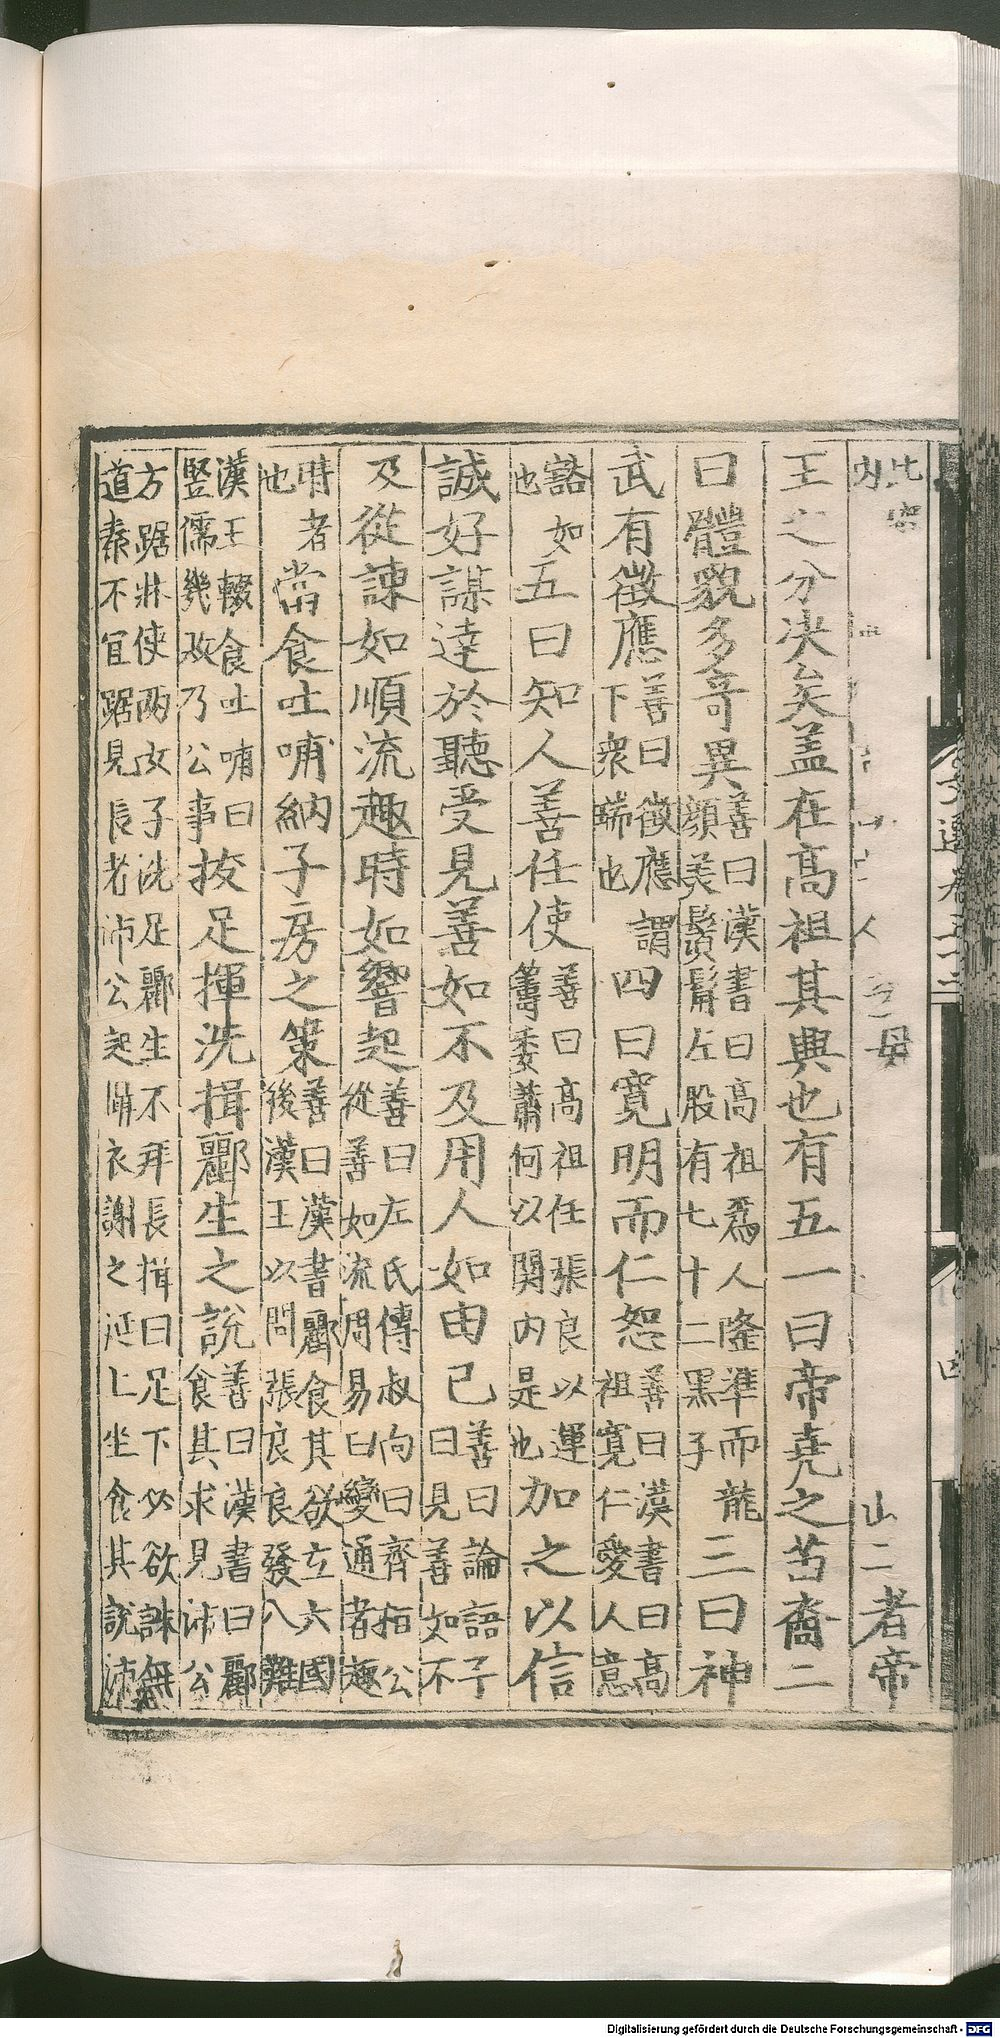 母
山二者帝
王之分決矣盖在高祖其興也有五一曰帝堯之苗裔二
曰體貌多奇異善曰漢書曰高祖爲人隆準而龍顔美鬚髯左股有七十二黑子三曰神
武有徵應善曰徵應謂下衆端也四曰寛明而仁恕善曰漢書曰高祖寛仁愛人意
豁如也五曰知人善任使善曰高祖任張良以運籌委蕭何以関内是也加之以信
誠好謀達於聽受見善如不及用人如由己善曰論語子曰見善如不
及從諫如順流趣時如響起善曰左氏傳叔向曰齊桓公從善如流周易曰變通者趣
時者也當食吐哺納子房之策善曰漢書酈食其欲立六國後漢王以問張良良發八難
漢王輟食吐哺曰豎儒幾敗乃公事拔足揮洗揖酈生之說善曰漢書曰酈食其求見沛公
方踞牀使两女子洗足酈生不拜長揖曰足下必欲誅無道秦不宜踞見長者沛公起攝衣謝之延上坐食其說沛
文選卷五十二
四
Digitalisierung gefördert durch die Deutsche Forschungsgemeinschaft - DFG